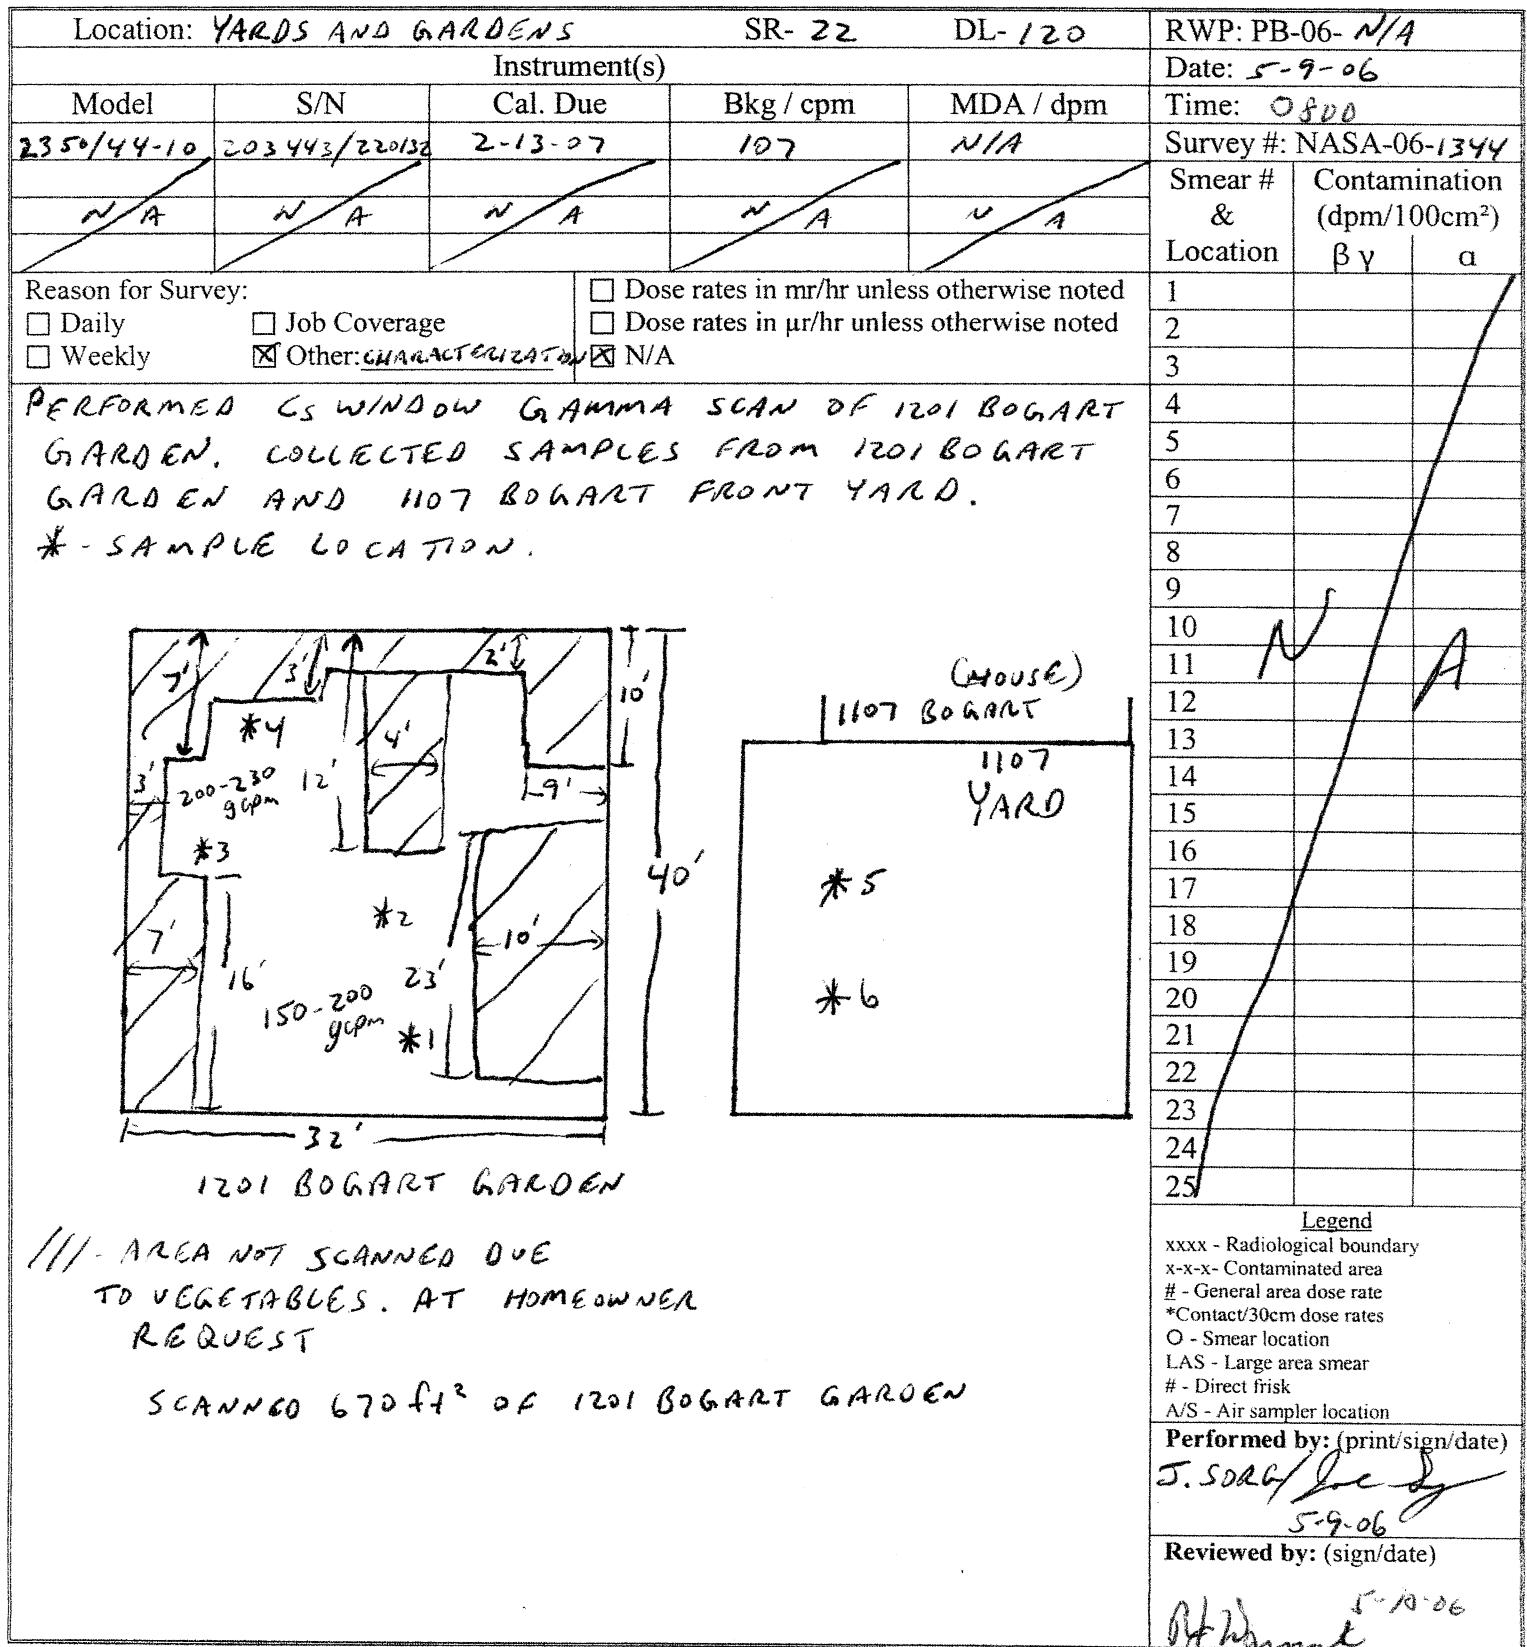 Location: YARDS AND GARDENS SR- 22 DL- 120
RWP: PB-06- N/A
Instrument(s)
Date: 5-9-06
Model S/N Cal. Due Bkg / cpm MDA / dpm
Time: 0800
2350/44-10 203443/220132 2-13-07 107 N/A
Survey #: NASA-06-1344
N/A N/A N/A N/A N/A
Smear # & Location
Contamination
(dpm/100cm²)
β γ α
Reason for Survey:
☐ Daily ☐ Job Coverage
☐ Weekly ☒ Other: CHARACTERIZATION
☐ Dose rates in mr/hr unless otherwise noted
☐ Dose rates in μr/hr unless otherwise noted
☒ N/A
PERFORMED Cs WINDOW GAMMA SCAN OF 1201 BOGART
GARDEN. COLLECTED SAMPLES FROM 1201 BOGART
GARDEN AND 1107 BOGART FRONT YARD.
* - SAMPLE LOCATION.
7' 3' 2' 10'
*4 4'
3' 200-230 12' 9'
gcpm
*3
40'
*2
7' 10'
16' 23'
150-200
gcpm *1
32'
1201 BOGART GARDEN
(HOUSE)
1107 BOGART
1107
YARD
*5
*6
/// - AREA NOT SCANNED DUE
TO VEGETABLES. AT HOMEOWNER
REQUEST
SCANNED 670 ft² OF 1201 BOGART GARDEN
1
2
3
4
5
6
7
8
9
10
11
12
13
14
15
16
17
18
19
20
21
22
23
24
25
N A
Legend
xxxx - Radiological boundary
x-x-x- Contaminated area
# - General area dose rate
*Contact/30cm dose rates
O - Smear location
LAS - Large area smear
# - Direct frisk
A/S - Air sampler location
Performed by: (print/sign/date)
J. SORG/
5-9-06
Reviewed by: (sign/date)
5-10-06